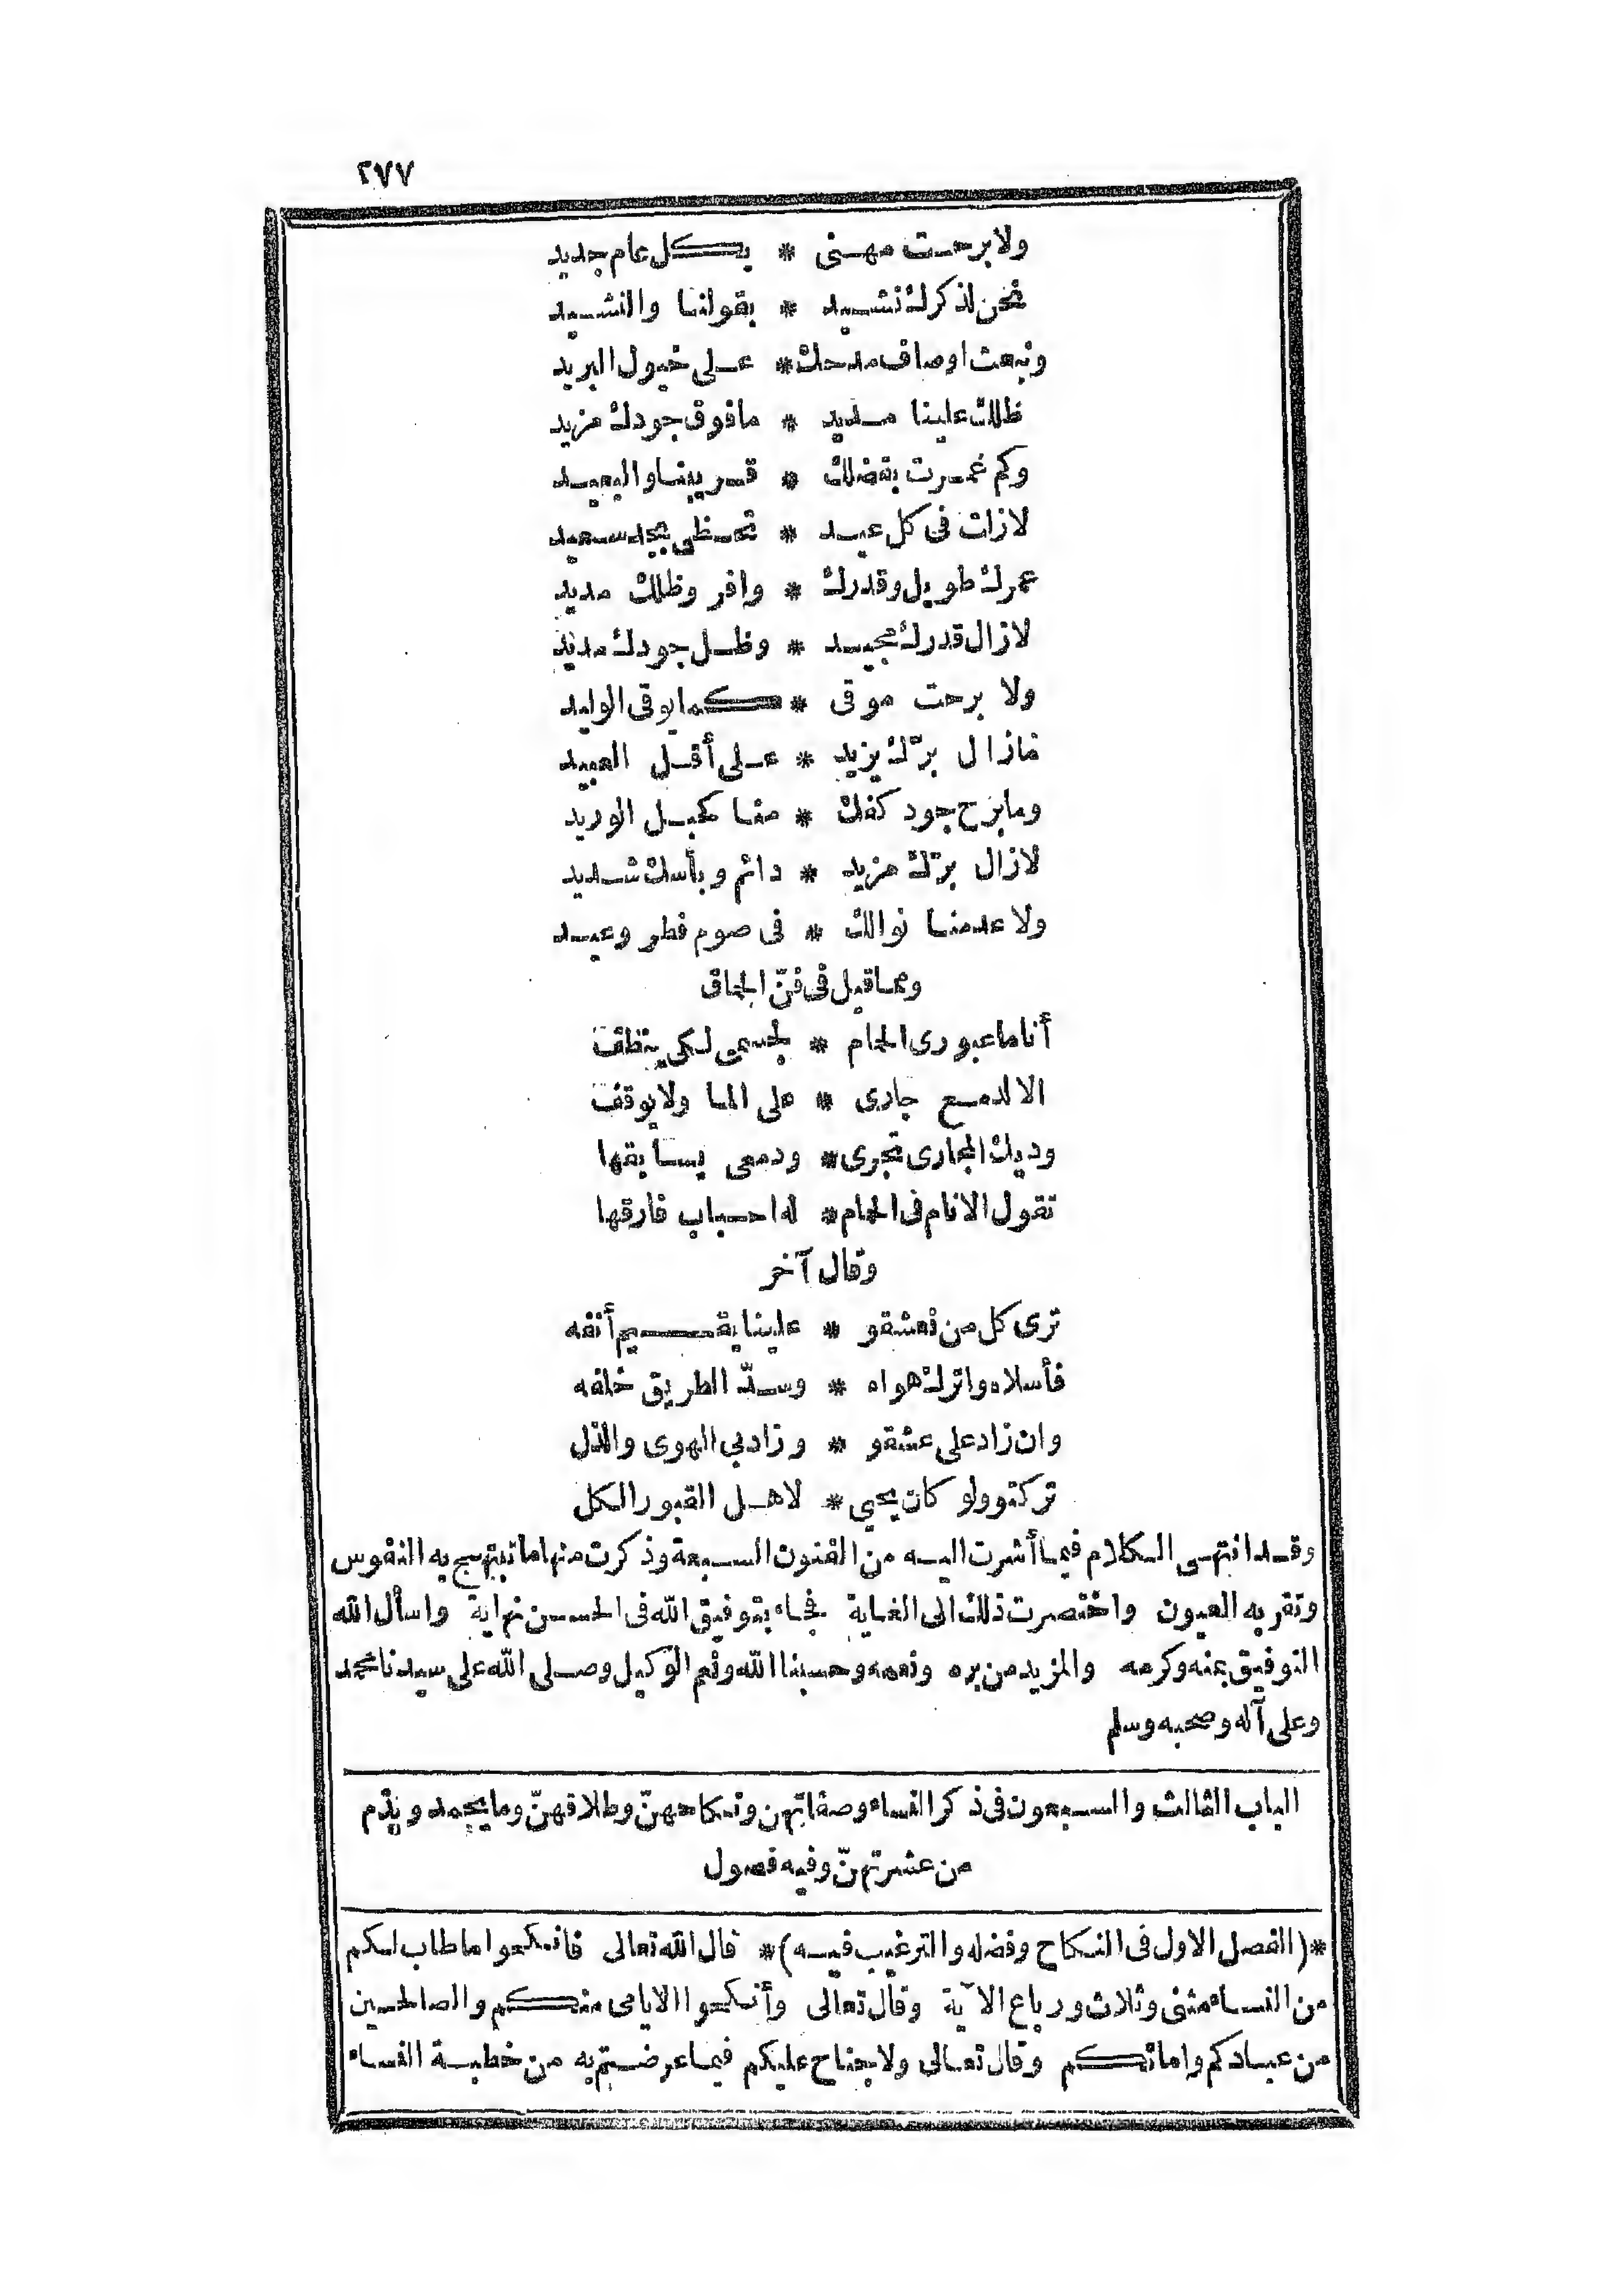 ٢٧٧
ولا برحت مهنى * بكل عام جديد
فنحن لذكرك نشيد * بقولنا والنشيد
ونبعث اوصاف مدحك * على خيول البريد
ظلك علينا مديد * مافوق جودك مزيد
وكم غمرت بفضلك * قريبنا والبعيد
لازلت فى كل عيد * تحظى بجد سعيد
عمرك طويل وقدرك * وافر وظلك مديد
لازال قدرك مجيد * وظل جودك مديد
ولا برحت موقى * كما يوقى الوليد
مازال برّك يزيد * على أقل العبيد
ومابرح جود كفك * منا كحبل الوريد
لازال برّك مزيد * دائم وبأسك شديد
ولا عدمنا نوالك * فى صوم فطر وعيد
ومما قيل فى فنّ الحماق
أنا ما عبورى الحمام * لجسمى لكى ينظف
الا لدمع جارى * على الما ولا يوقف
وديك المجارى تجرى * ودمعى يسابقها
تقول الانام فى الحمام * له احباب فارقها
وقال آخر
ترى كل من نعشقو * علينا يقيم أنفه
فأسلاه واترك هواه * وسدّ الطريق خلفه
وان زاد على عشقو * وزاد بى الهوى والذل
تركتو ولو كان يحيى * لاهل القبور الكل
وقد انتهى الكلام فيما أشرت اليه من الفنون السبعة وذكرت منها ما تبتهج به النفوس
وتقر به العيون واختصرت ذلك الى الغاية فجاء بتوفيق الله فى الحسن نهاية واسأل الله
التوفيق بمنه وكرمه والمزيد من بره ونعمه وحسبنا الله ونعم الوكيل وصلى الله على سيدنا محمد
وعلى آله وصحبه وسلم
الباب الثالث والسبعون فى ذكر النساء وصفاتهن ونكاحهنّ وطلاقهنّ وما يحمد ويذم
من عشرتهنّ وفيه فصول
*(الفصل الاول فى النكاح وفضله والترغيب فيه)* قال الله تعالى فانكحوا ما طاب لكم
من النساء مثنى وثلاث ورباع الآية وقال تعالى وأنكحوا الايامى منكم والصالحين
من عبادكم وامائكم وقال تعالى ولا جناح عليكم فيما عرضتم به من خطبة النساء